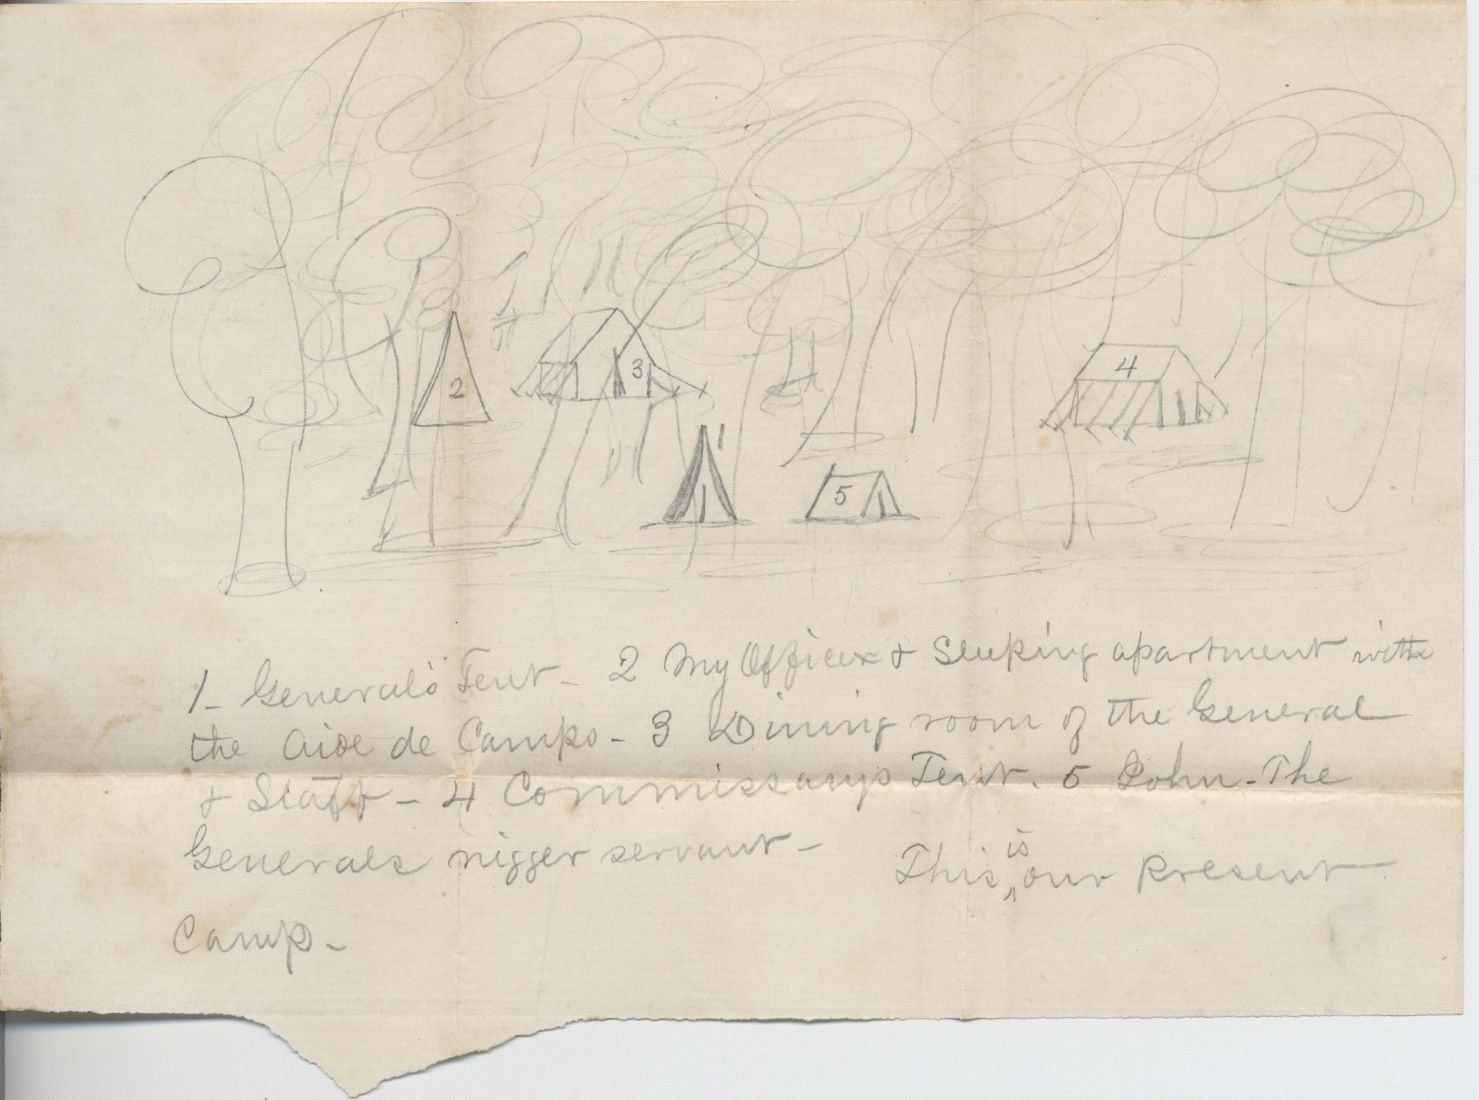 2
3
4
1
5
1 - General's Tent - 2 My Office & Sleeping apartment with
the Aide de Camps - 3 Dining room of the General
& Staff - 4 Commissarys Tent. 5 John - The
Generals nigger servant -
This is our Present
Camp -